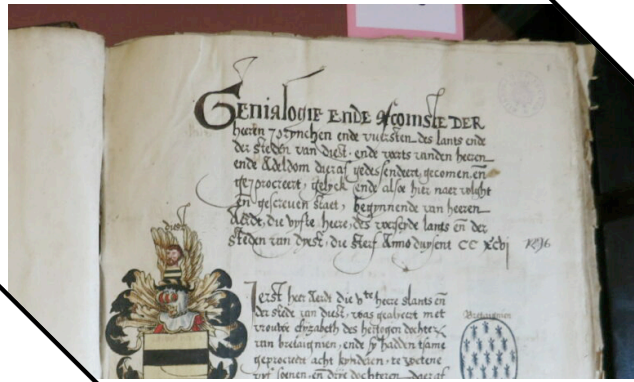 Genialogie ende afcomste der
heeren prynchen ende vuersten des lants ende
der steden van diest, ende voirts vanden heeren
ende Adeldom dieraf gedessendeert gecomen en
geprocreert, gelyck ende alsoe hier naer volght
en gescreuen staet, begynnende van heeren
Aerdt, die vyfste heere, des voerseyde lants en der
steden van dyest, die sterf Anno duysent CC xcvj 1296
diest
Ierst heer Aerdt die vte heere slants en
der stede van diest, was gealieert met
vrouwe elyzabeth des hertogen dochter
van bretaignien, ende sy hadden tsame
geprocreert acht kynderen, te wetene
vyf sonen, en drye dochteren, daeraf
Bretaignien